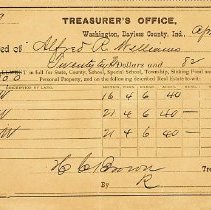 TREASURER'S OFFICE,
Washington, Daviess County, Ind., Ap
ed of Alfred R. Williams
Twenty Dollars and 82
in full for State, County, School, Special School, Township, Sinking Fund and
Personal Property, and on the following described Real Estate to-wit:
16 4 6 40
W 21 4 6 40
W 21 4 6 40
H C Brown Tre
By R